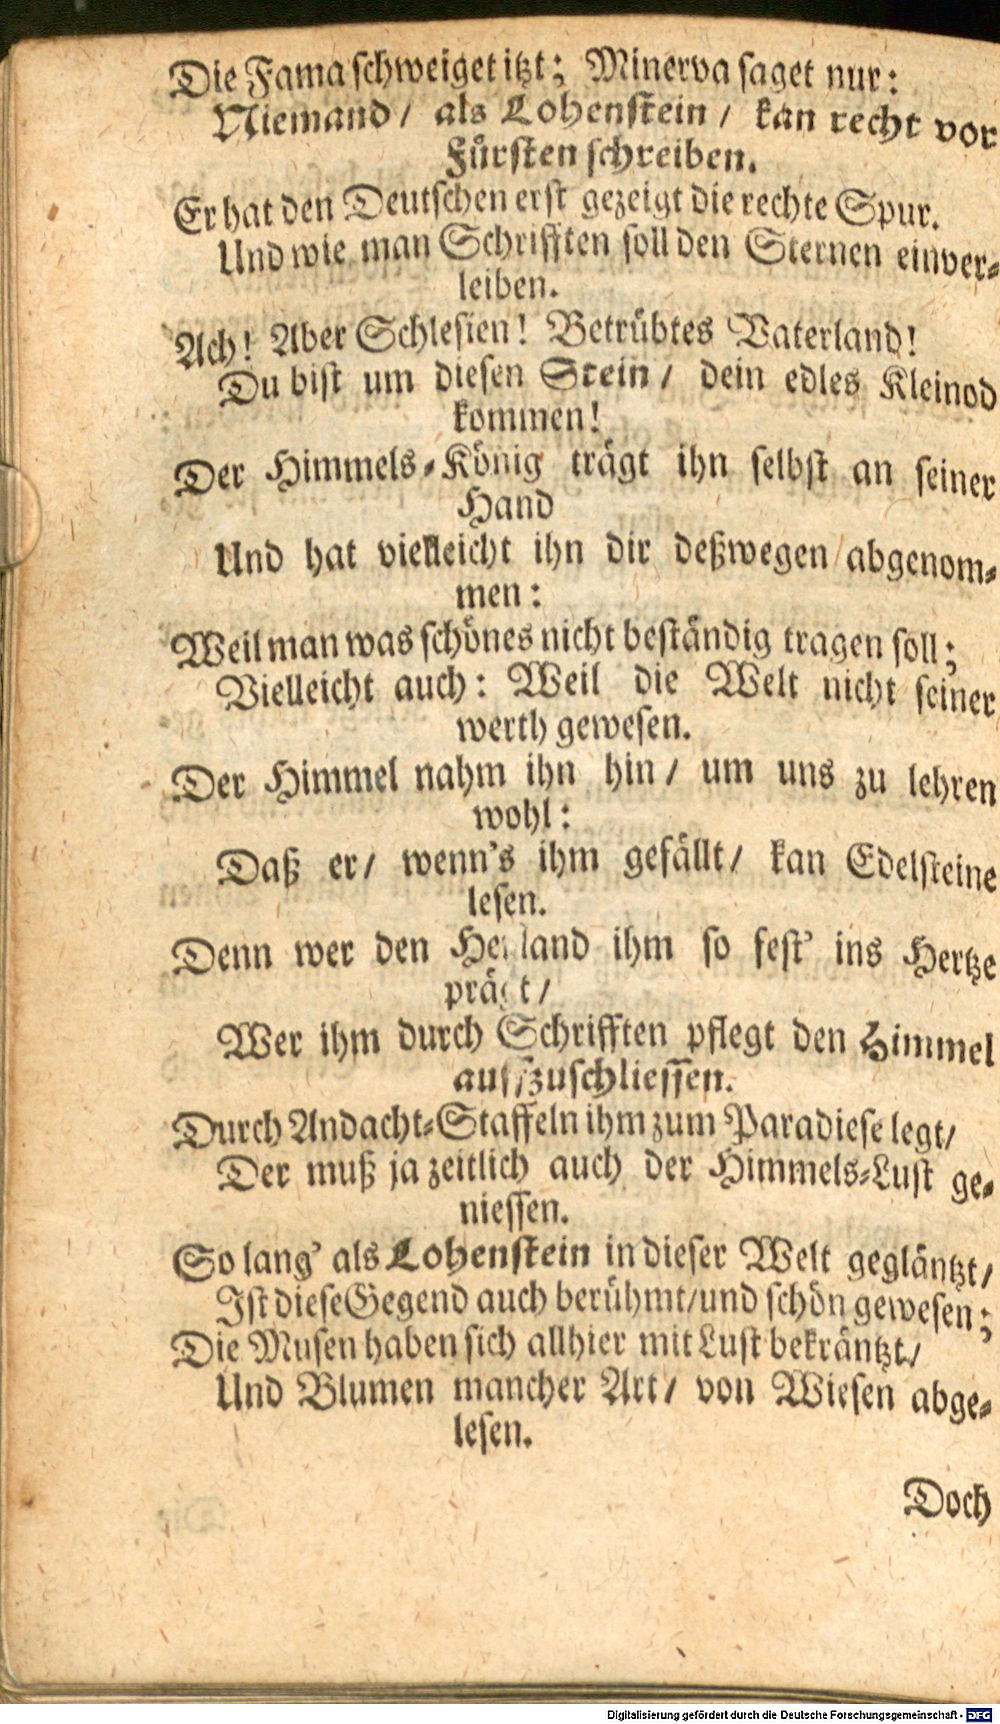 Die Fama schweiget itzt; Minerva saget nur:
Niemand/ als Lohenstein/ kan recht vor
Fürsten schreiben.
Er hat den Deutschen erst gezeigt die rechte Spur.
Und wie man Schrifften soll den Sternen einver-
leiben.
Ach! Aber Schlesien! Betrübtes Vaterland!
Du bist um diesen Stein/ dein edles Kleinod
kommen!
Der Himmels-König trägt ihn selbst an seiner
Hand
Und hat vielleicht ihn dir deßwegen abgenom-
men:
Weil man was schönes nicht beständig tragen soll;
Vielleicht auch: Weil die Welt nicht seiner
werth gewesen.
Der Himmel nahm ihn hin/ um uns zu lehren
wohl:
Daß er/ wenn's ihm gefällt/ kan Edelsteine
lesen.
Denn wer den Heyland ihm so fest' ins Hertze
prägt/
Wer ihm durch Schrifften pflegt den Himmel
auffzuschliessen.
Durch Andacht-Staffeln ihm zum Paradiese legt/
Der muß ja zeitlich auch der Himmels-Lust ge-
niessen.
So lang' als Lohenstein in dieser Welt gegläntzt/
Ist diese Gegend auch berühmt/und schön gewesen;
Die Musen haben sich allhier mit Lust bekräntzt/
Und Blumen mancher Art/ von Wiesen abge-
lesen.
Doch
Digitalisierung gefördert durch die Deutsche Forschungsgemeinschaft - DFG